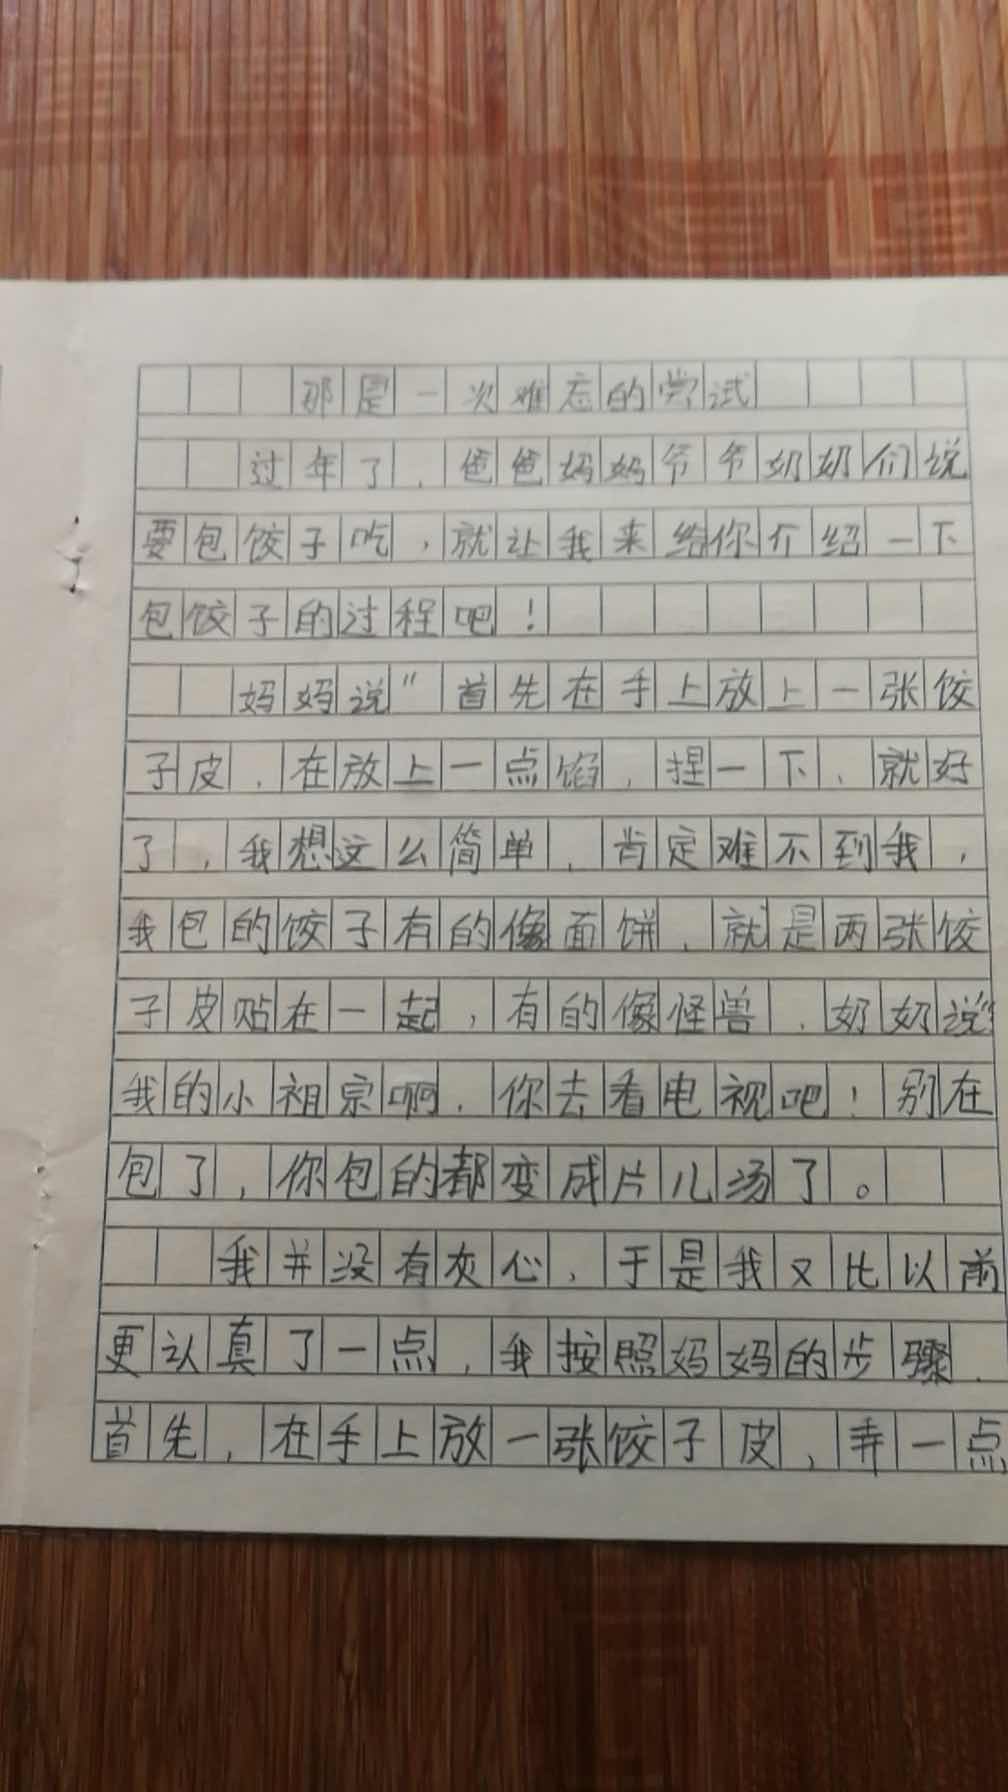 那是一次难忘的尝试
过年了，爸爸妈妈爷爷奶奶们说
要包饺子吃，就让我来给你介绍一下
包饺子的过程吧！
妈妈说“首先在手上放上一张饺
子皮，在放上一点馅，捏一下，就好
了，我想这么简单，肯定难不到我，
我包的饺子有的像面饼，就是两张饺
子皮贴在一起，有的像怪兽，奶奶说“
我的小祖宗啊，你去看电视吧！别在
包了，你包的都变成片儿汤了。
我并没有灰心，于是我又比以前
更认真了一点，我按照妈妈的步骤，
首先，在手上放一张饺子皮，弄一点